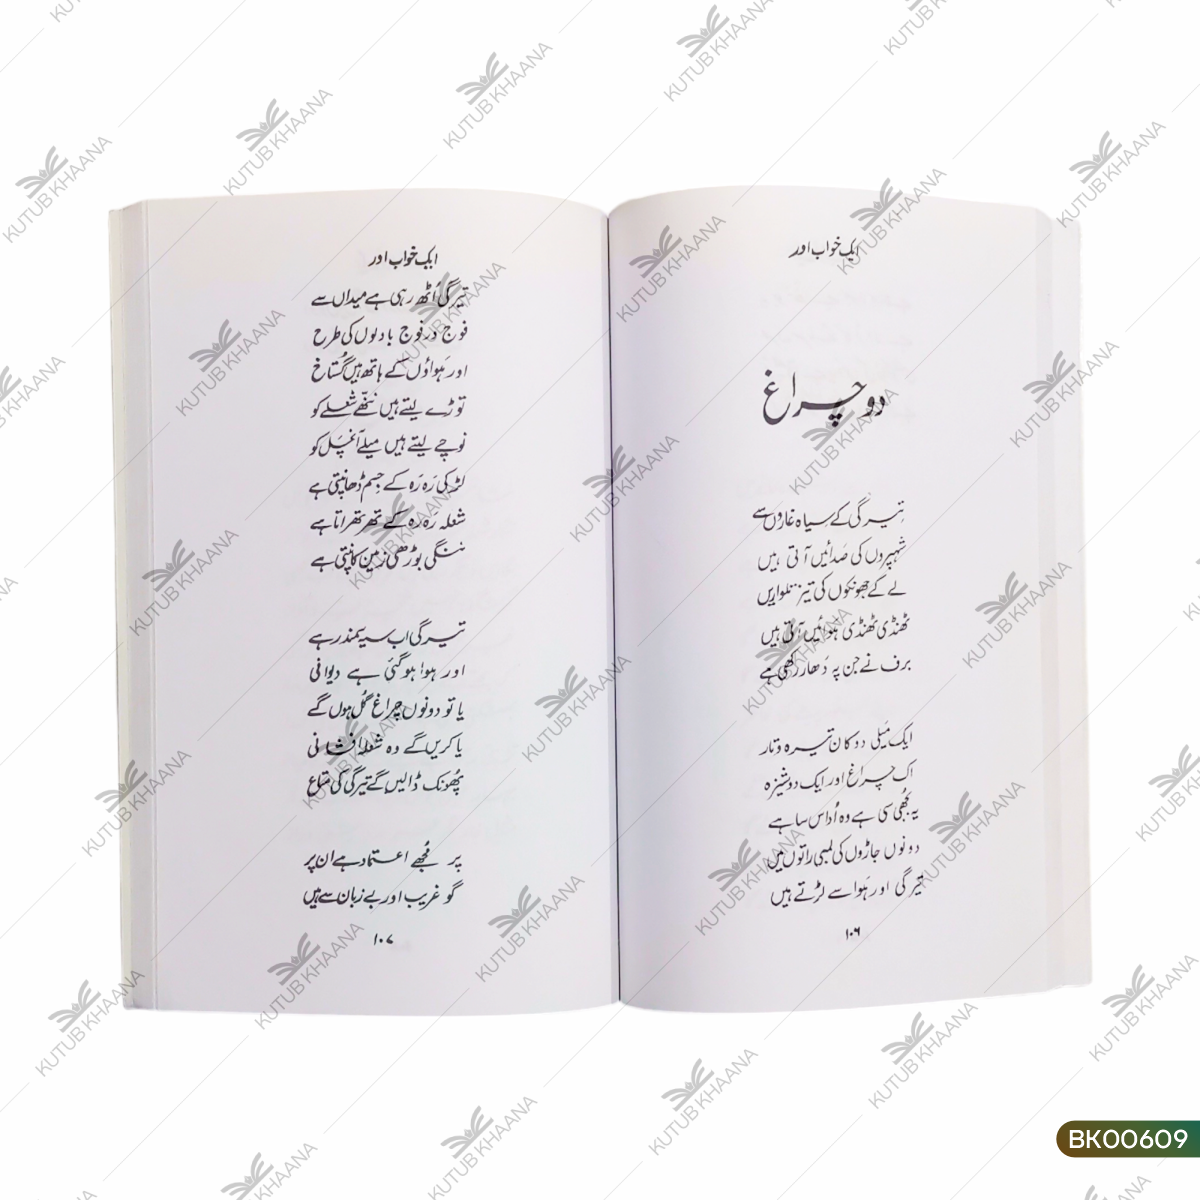 ایک خواب اور
دو چراغ
تیرگی کے سیاہ غاروں سے
شہپروں کی صدائیں آتی ہیں
لے کے جھونکوں کی تیز تلواریں
ٹھنڈی ٹھنڈی ہوائیں آتی ہیں
برف نے جن پہ دھار رکھی ہے
ایک میلی دوکان تیرہ و تار
اک چراغ اور ایک دوشیزہ
یہ بجھی سی ہے وہ اُداس سا ہے
دونوں جاڑوں کی لمبی راتوں میں
تیرگی اور ہوا سے لڑتے ہیں
۱۰۶
ایک خواب اور
تیرگی اُٹھ رہی ہے میداں سے
فوج در فوج بادلوں کی طرح
اور ہواؤں کے ہاتھ ہیں گستاخ
توڑے لیتے ہیں ننھے شعلے کو
نوچے لیتے ہیں میلے آنچل کو
لڑکی رَہ رَہ کے جسم ڈھانپتی ہے
شعلہ رَہ رَہ کے تھرتھراتا ہے
ننگی بوڑھی زمین کانپتی ہے
تیرگی اب سیہ سمندر ہے
اور ہوا ہو گئی ہے دیوانی
یا تو دونوں چراغ گُل ہوں گے
یا کریں گے وہ شعلہ افشانی
پھُونک ڈالیں گے تیرگی کی متاع
پر مُجھے اعتماد ہے ان پر
گو غریب اور بے زبان سے ہیں
۱۰۷
KUTUB KHAANA
BK00609